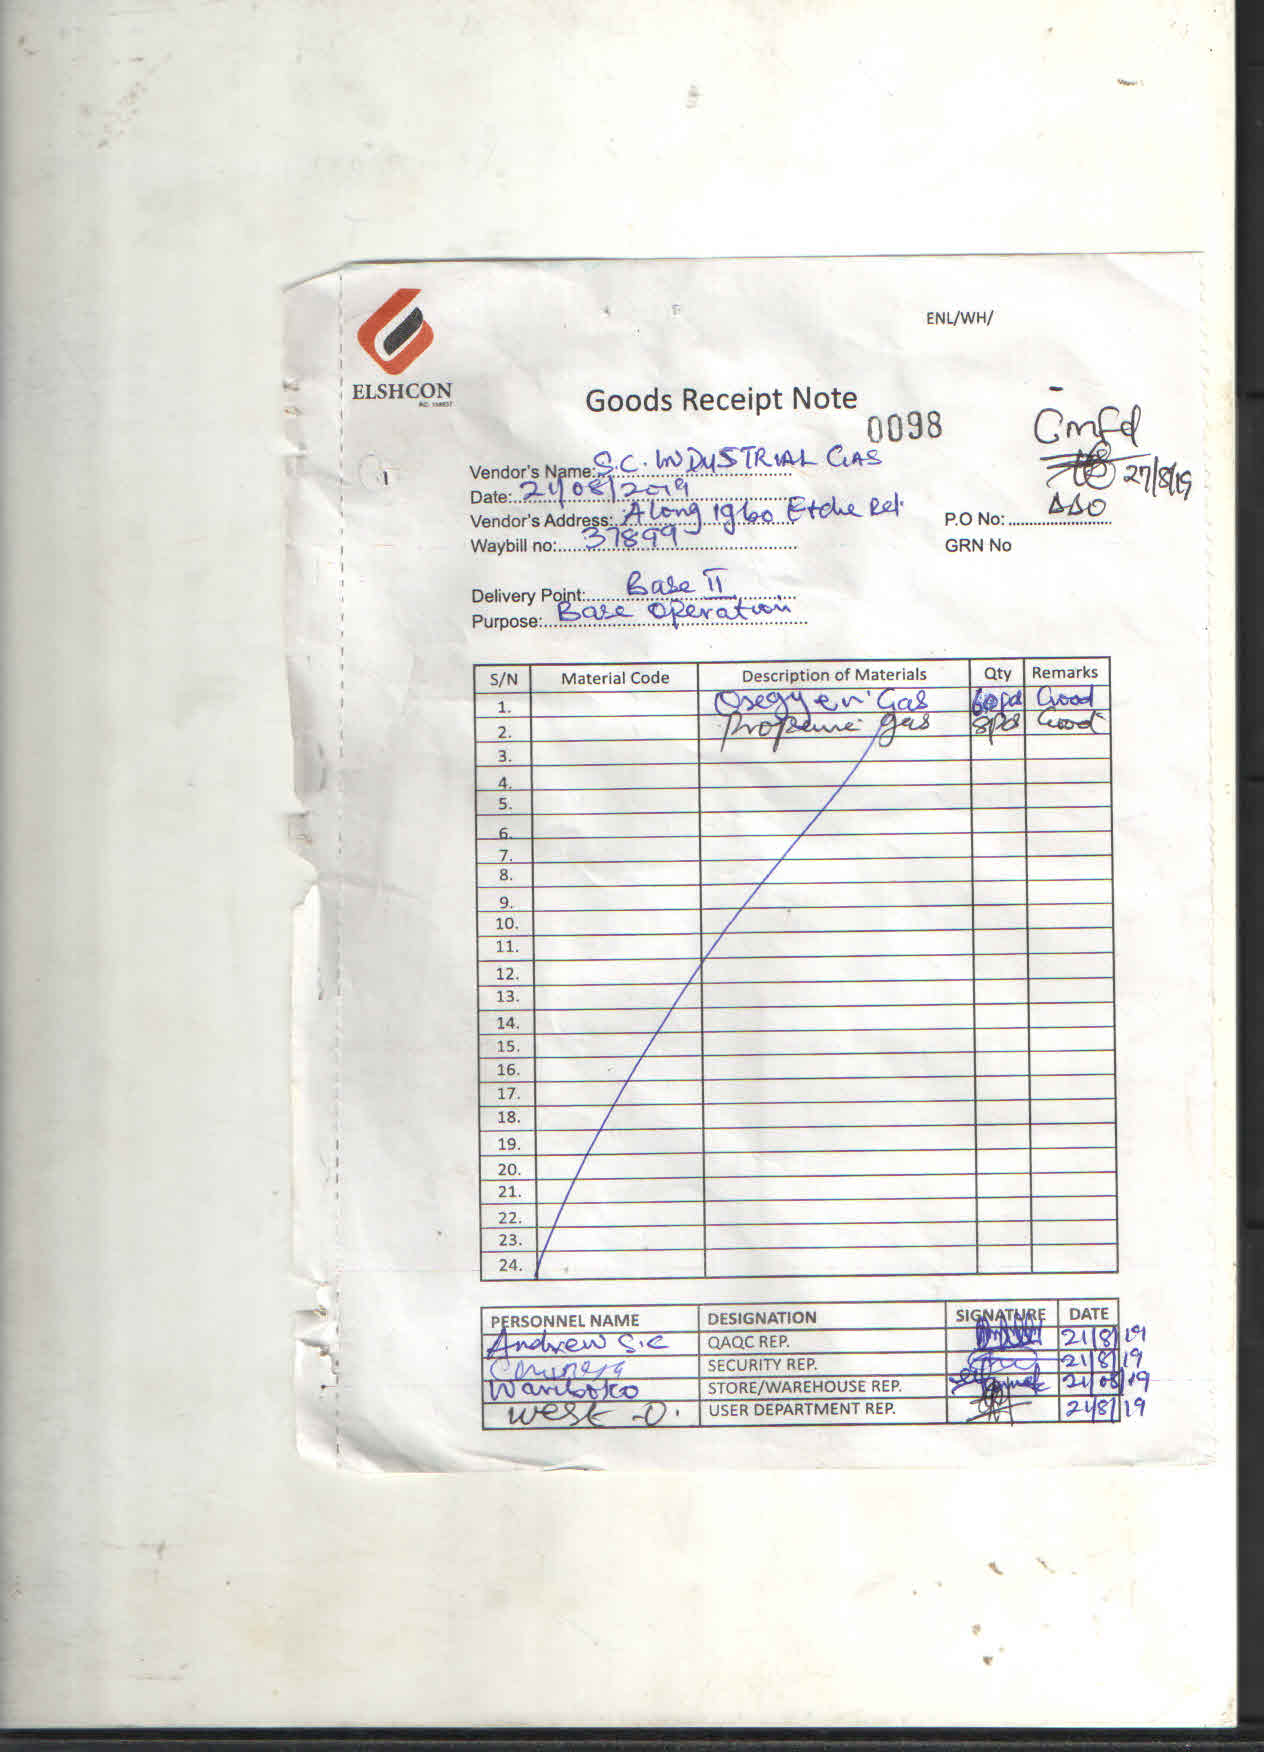 ENL/WH/
ELSHCON
Goods Receipt Note
0098
Cmfd
27/8/19
DDO
Vendor's Name: S.C. INDUSTRIAL GAS
Date: 21/08/2019
Vendor's Address: Along Igbo Etche Rd.
P.O No:
Waybill no: 37899
GRN No
Delivery Point: Base II
Purpose: Base Operation
S/N Material Code Description of Materials Qty Remarks
1. Osegyen Gas 60pcs Good
2. Propane gas 8pcs Good
3.
4.
5.
6.
7.
8.
9.
10.
11.
12.
13.
14.
15.
16.
17.
18.
19.
20.
21.
22.
23.
24.
PERSONNEL NAME DESIGNATION SIGNATURE DATE
Andrew S.C QAQC REP. 21/8/19
SECURITY REP. 21/8/19
Wariboko STORE/WAREHOUSE REP. 21/08/19
West O. USER DEPARTMENT REP. 21/8/19